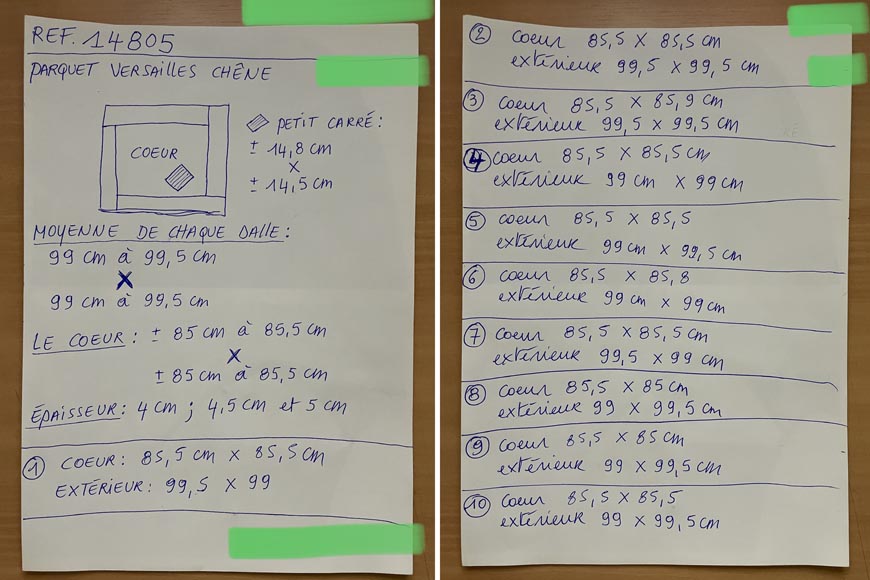 REF. 14805
PARQUET VERSAILLES CHÊNE
COEUR
PETIT CARRÉ:
± 14,8 cm
X
± 14,5 cm
MOYENNE DE CHAQUE DALLE:
99 cm à 99,5 cm
X
99 cm à 99,5 cm
LE COEUR: ± 85 cm à 85,5 cm
X
± 85 cm à 85,5 cm
ÉPAISSEUR: 4 cm ; 4,5 cm et 5 cm
1 COEUR: 85,5 cm X 85,5 cm
EXTÉRIEUR: 99,5 X 99
2 coeur 85,5 X 85,5 cm
extérieur 99,5 X 99,5 cm
3 coeur 85,5 X 85,9 cm
extérieur 99,5 X 99,5 cm
4 coeur 85,5 X 85,5 cm
extérieur 99 cm X 99 cm
5 coeur 85,5 X 85,5
extérieur 99 cm X 99,5 cm
6 coeur 85,5 X 85,8
extérieur 99 cm X 99 cm
7 coeur 85,5 X 85,5 cm
extérieur 99,5 X 99 cm
8 coeur 85,5 X 85 cm
extérieur 99 X 99,5 cm
9 coeur 85,5 X 85 cm
extérieur 99 X 99,5 cm
10 coeur 85,5 X 85,5
extérieur 99 X 99,5 cm